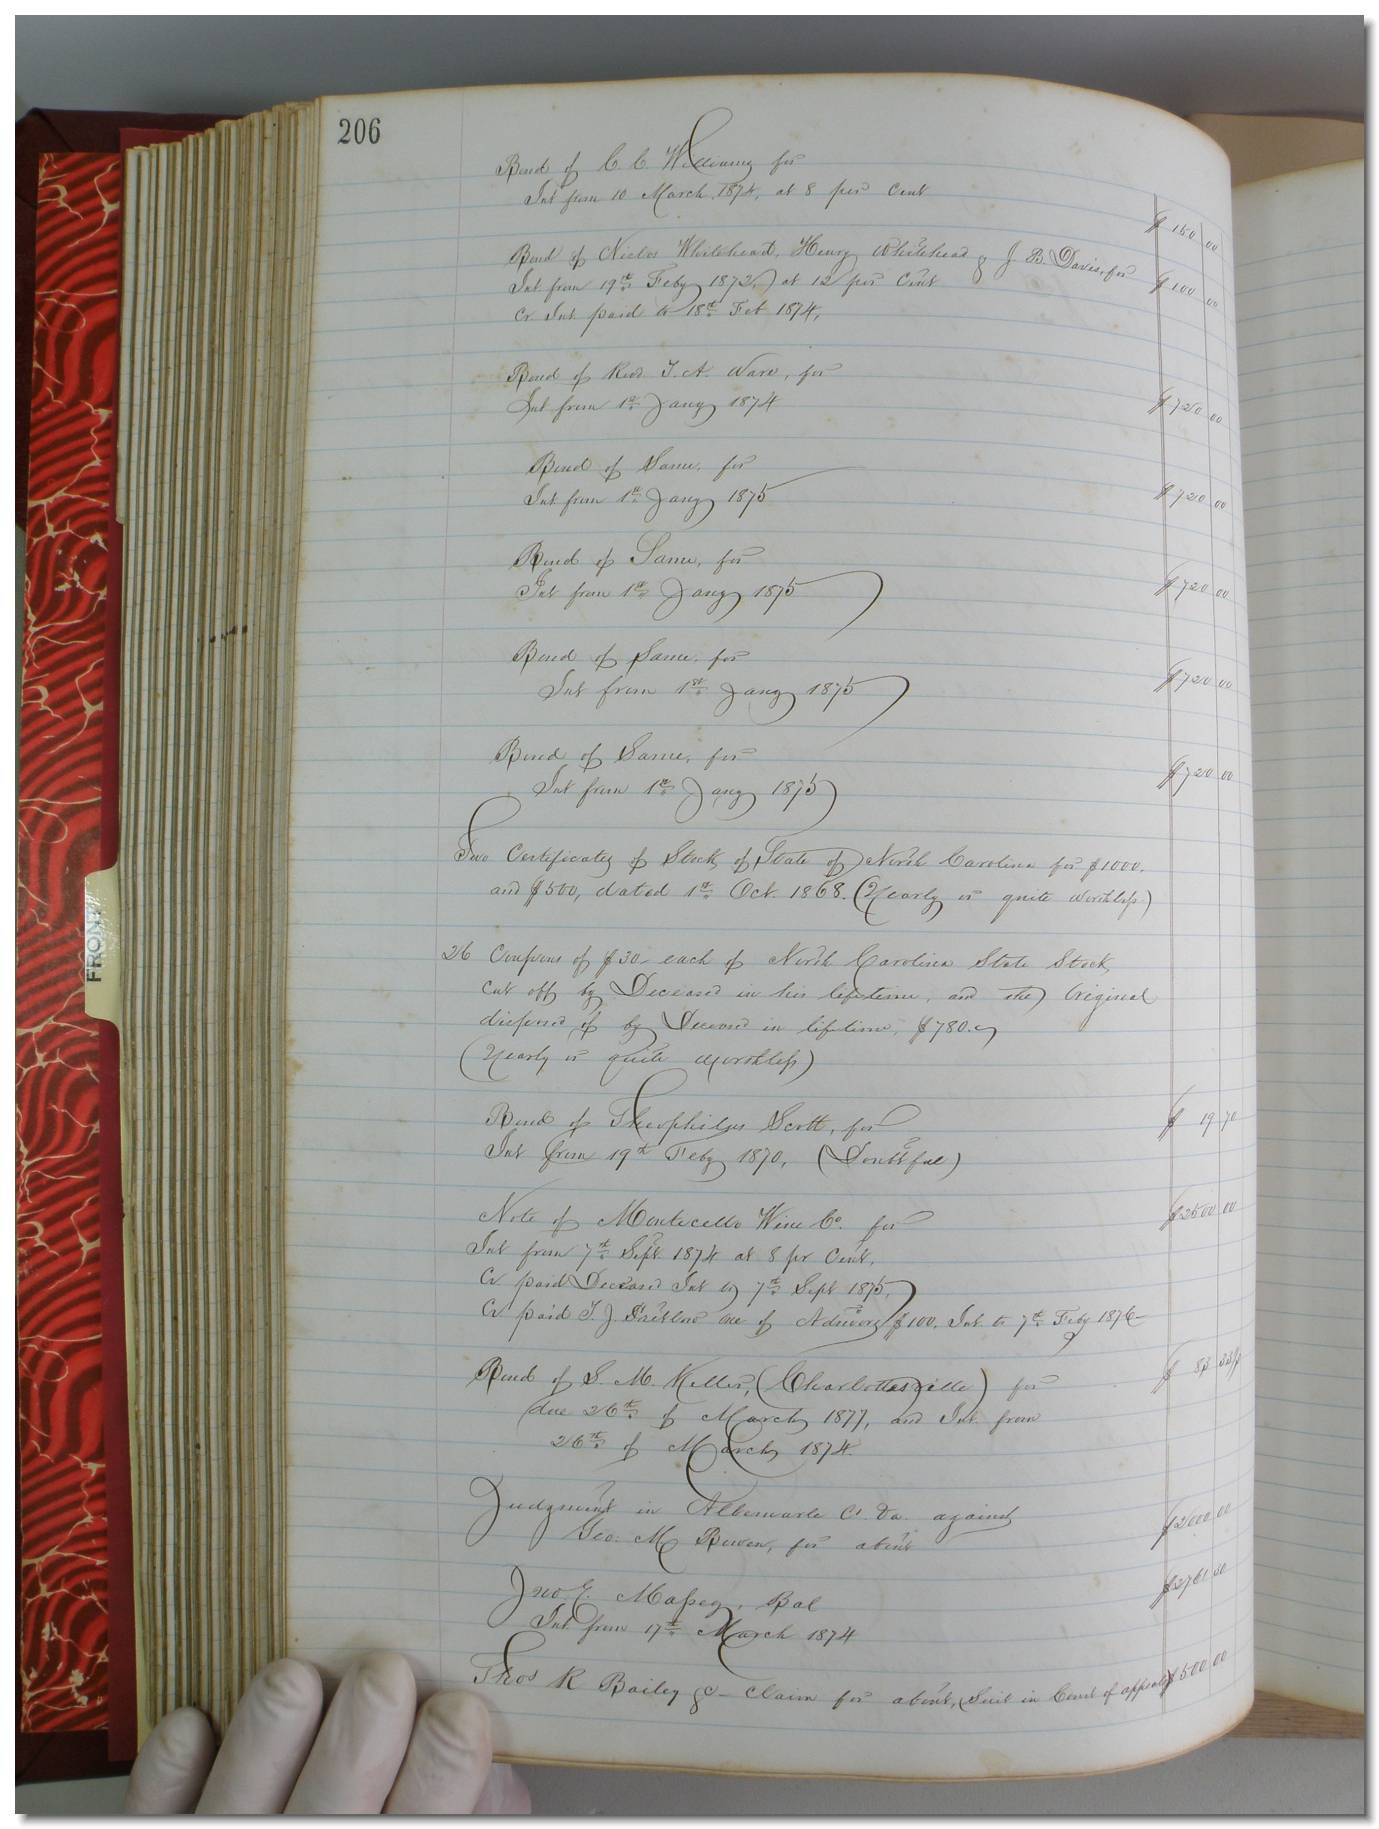 206
Bond of C. C. Williams for
Int from 10 March, 1874, at 8 per Cent $150 00
Bond of Niclos Whitehead, Henry Whitehead & J. B. Davis, for
Int from 19th Feby 1872, at 12 per Cent $100 00
Cr Int paid to 18th Feb 1874,
Bond of Revd J. A. Ware, for
Int from 1st Jany 1874 $720 00
Bond of Same, for
Int from 1st Jany 1875 $720 00
Bond of Same, for
Int from 1st Jany 1875 $720 00
Bond of Same, for
Int from 1st Jany 1875 $720 00
Bond of Same, for
Int from 1st Jany 1875 $720 00
Two Certificates of Stock of State of North Carolina for $1000.
and $500, dated 1st Oct. 1868. (Nearly or quite worthless)
26 Coupons of $30 each of North Carolina State Stock
cut off by Deceased in his lifetime, and the Original
disposed of by Deceased in lifetime, $780.
(Nearly or quite worthless)
Bond of Theophilus Scott, for $19 70
Int from 19th Feby 1870, (Doubtful)
Note of Monticello Wine Co. for $2500 00
Int from 7th Sept. 1874 at 8 pr Cent,
Cr paid Deceased Int to 7th Sept 1875,
Cr paid T. J. one of Admors $100. Int. to 7th Feby 1876
Bond of S. M. Keller, (Charlottesville) for $83 33⅓
due 26th of March 1877, and Int. from
26th of March 1874.
Judgment in Albemarle Co. Va. against
Geo. M Bowen, for about $2000 00
Jno. E. Massey, Bal $2761
Int from 17th March 1874
Thos R Bailey &c Claim for about, (Suit in Court of appeals) $500 00
FRONT